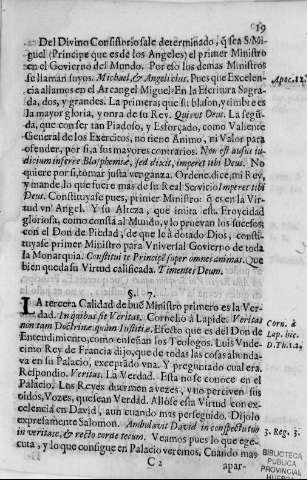 19
Del Divino Consistorio sale determinado, q̃ sea S. Mi-
guel (Principe que es de los Angeles) el primer Ministro
en el Govierno del Mundo. Por esso los demas Ministros
se llaman suyos. Michael, & Angeli eius. Pues que Excelen-
cia allamos en el Arcangel Miguel? En la Escritura Sagra-
da, dos, y grandes. La primera que su blason, y timbre es
la mayor gloria, y onra de su Rey. Quis ut Deus. La segũ-
da, que con ser tan Piadoso, y Esforçado, como Valiente
General de los Exercicos, no tiene Animo, ni Valor para
ofender, por si, a sus mayores contrarios. Non est ausus iu-
dicium inferre Blasphemiæ, sed dixit, imperet tibi Deus. No
quiere por si, tomar justa venganza. Ordene, dice, mi Rey,
y mande, lo que fuere mas de su Real Servicio Imperet tibi
Deus. Constituyase pues, primer Ministro: q̃ es en la Vir-
tud vn Angel. Y su Alteza, que imita esta Eroycidad
gloriosa, como consta al Mundo, y lo prueban los sucessos
con el Don de Piedad, de que le à dotado Dios, consti-
tuyase primer Ministro para Vniversal Govierno de toda
la Monarquia. Constitui te Principẽ super omnes animas. Que
bien queda su Virtud calificada. Timentes Deum.
§. 7.
LA tercera Calidad de buẽ Ministro primero es la Ver-
dad. In quibus sit Veritas. Cornelio à Lapide. Veritas
non tam Doctrinæ, quàm Iustitiæ. Efecto que es del Don de
Entendimiento, como enseñan los Teologos. Luis Vnde-
cimo Rey de Francia dijo, que de todas las cosas abunda-
va en su Palacio, exceptado vna. Y preguntado cual era.
Respondio. Veritas. La Verdad. Esta no se conoce en el
Palacio. Los Reyes duermen a vezes, y no perciven sus
oidos, Vozes, que sean Verdad. Allòse esta Virtud con ex-
celencia en David, aun cuando mas perseguido. Dijolo
expresamente Salomon. Ambulavit David in conspectu tuo
in veritate, & recto corde tecum. Veamos pues lo que ege-
cuta, y lo que consigue en Palacio veremos. Cuando mas
C 2
apar-
Apoc. 12.
Corn. à
Lap. hic.
3. Reg. 3.
BIBLIOTECA
PUBLICA
PROVINCIAL